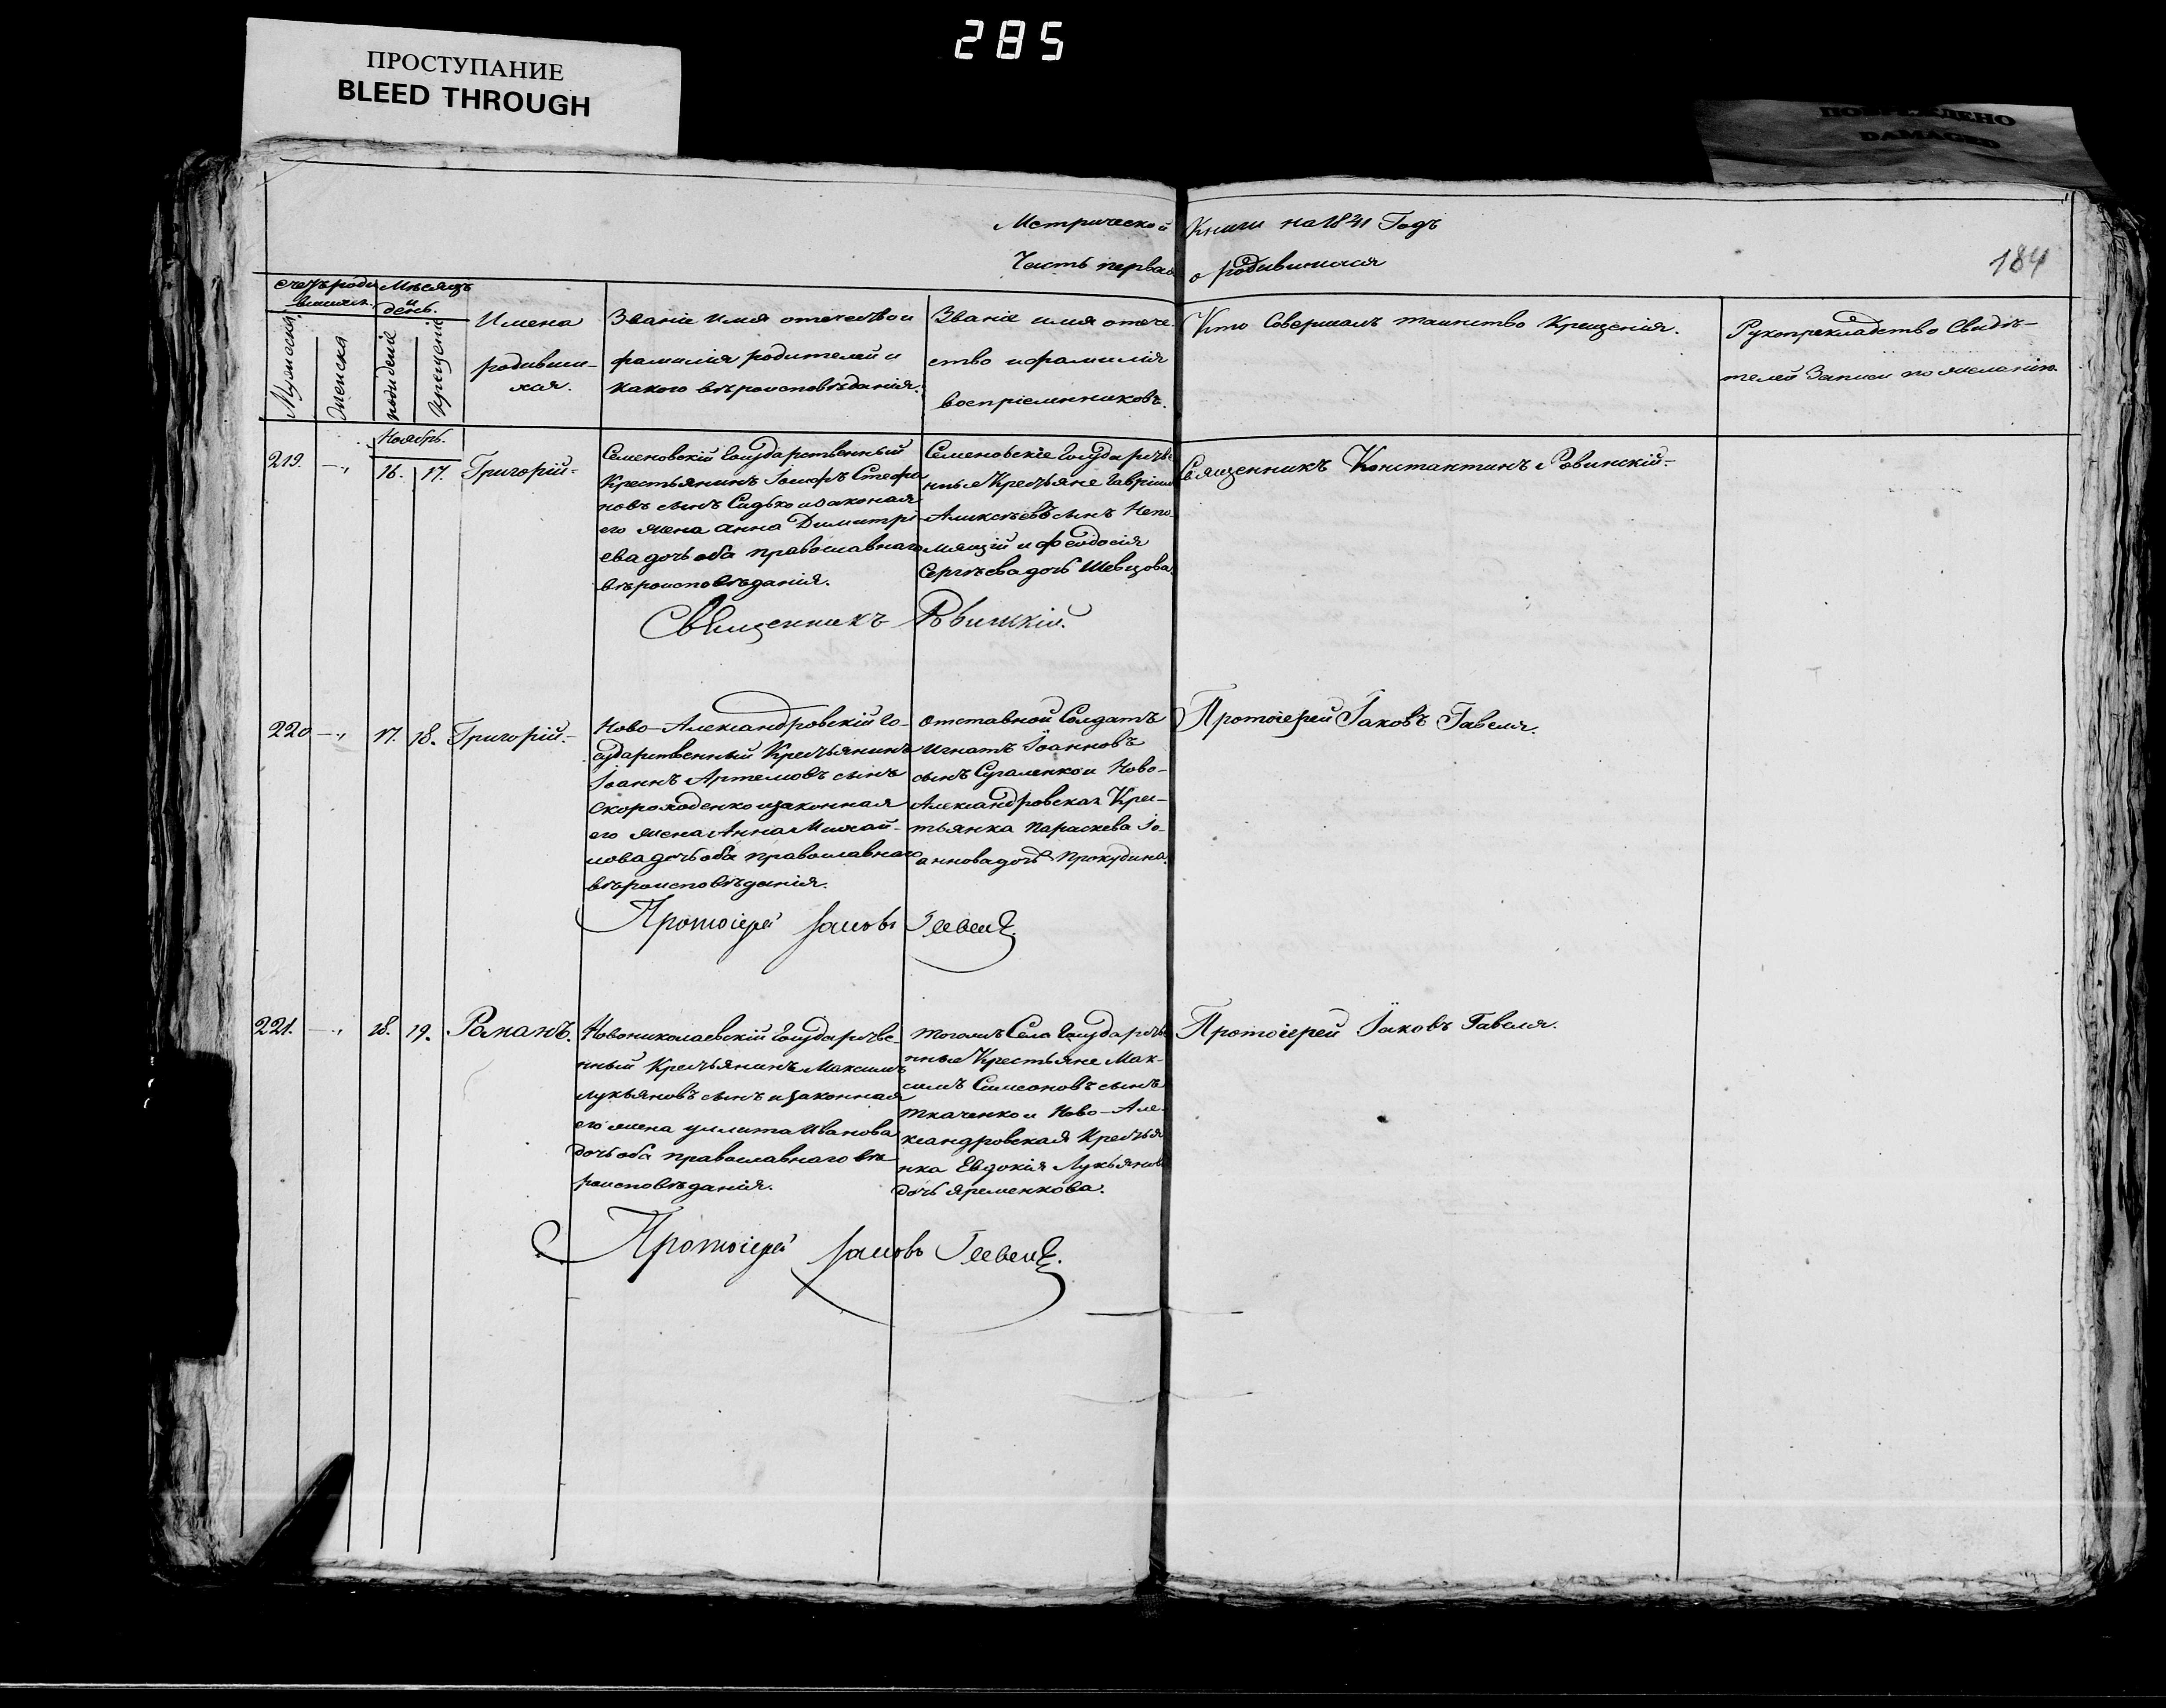 285
ПРОСТУПАНИЕ
BLEED THROUGH
ПОВРЕЖДЕНО
DAMAGED
Метрической Книги на 1841 Годъ
Часть первая о родившихся
184
счетъ роди
вшихся.
Мѣсяцъ
и
день.
Мужеска
Женска
рожденіе
Крещеніе
Имена
родивши-
хся.
Званіе имя отечество и
фамилія родителей и
какого вѣроисповѣданія.
Званіе имя отече-
ство и фамилія
воспріемниковъ.
Кто Совершалъ таинство Крещенія.
Рукоприкладство Свидѣ-
телей Записи по желанію.
Ноябрь.
219. —„ 16. 17. Григорій.
Семеновскій Государственный
Крестьянинъ Іосифъ Стефа
новъ сынъ Сидько и законая
его жена Анна Димитрі-
ева дочь оба православнаго
вѣроисповѣданія.
Семеновскіе Государстве
нные Крестьяне Гавріилъ
Алексѣевъ сынъ Непо-
мящій и Феодосія
Сергѣева дочь Шевцова.
Священникъ Константинъ Ровинскій.
Священникъ Ровинскій.
220 —„ 17. 18. Григорій.
Ново-Александровскій Го-
сударственный Крестьянинъ
Іоаннъ Артемовъ сынъ
Скороходенко и законная
его жена Анна Михай-
лова дочь оба православнаго
вѣроисповѣданія.
отставной Солдатъ
Игнатъ Іоанновъ
сынъ Сугаленко и Ново-
Александровская Крес-
тьянка Параскева Іо-
аннова дочь Прокудина.
Протоіерей Іаковъ Гавеля.
Протоіерей Іаковъ Гавеля.
221. —„ 18. 19. Романъ.
Новониколаевскій Государстве-
нный Крестьянинъ Максимъ
Лукьяновъ сынъ и законная
его жена Улита Иванова
дочь оба православнаго вѣ-
роисповѣданія.
тогожъ Села Государстве
нные Крестьяне Мак-
симъ Симеоновъ сынъ
Ткаченко и Ново-Але-
ксандровская Крестья
нка Евдокія Лукьянова
дочь Яременкова.
Протоіерей Іаковъ Гавеля.
Протоіерей Іаковъ Гавеля.